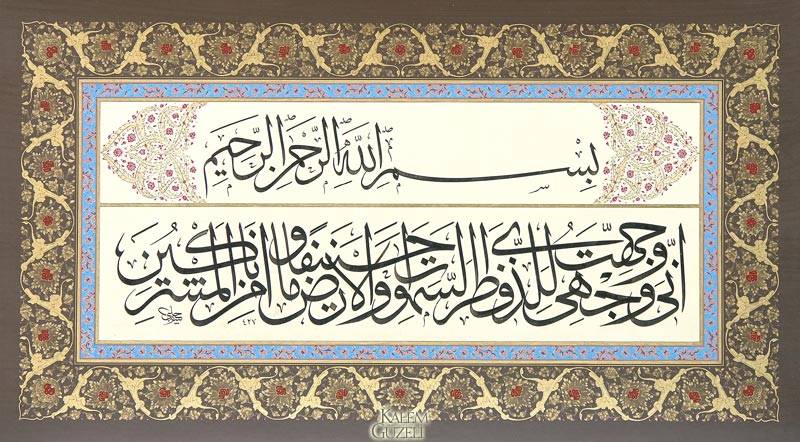 بِسْمِ اللّٰهِ الرَّحْمٰنِ الرَّحِيمِ
اِنّٖي وَجَّهْتُ وَجْهِيَ لِلَّذٖي فَطَرَ السَّمٰوَاتِ وَالْاَرْضَ حَنٖيفًا وَمَا اَنَا مِنَ الْمُشْرِكٖينَ
٤٢٧
KALEM
GÜZELİ